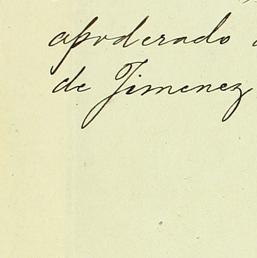 apoderado
de Jimenez